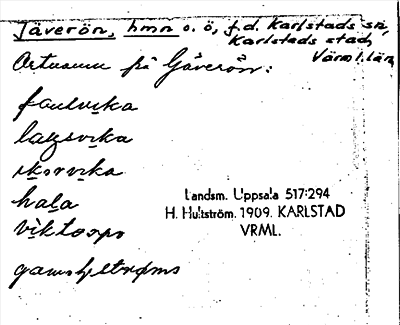 Jäverön, hmn o. ö, f.d. Karlstads sn,
Karlstads stad,
Värml. län
Ortnamn på Gäverön:
fantvika
latsvika
skorvika
hala
viktorps
Landsm. Uppsala 517:294
H. Hultström. 1909. KARLSTAD
VRML.